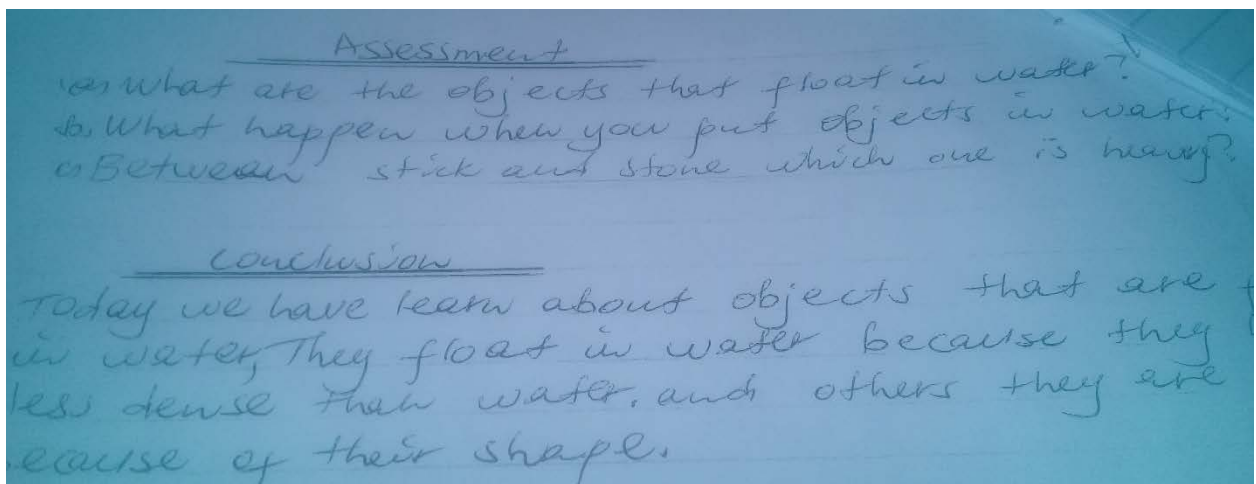 Assessment
a, What are the objects that float in water?
b, What happen when you put objects in water?
c, Between stick and stone which one is heavy?
Conclusion
Today we have learn about objects that are
in water, They float in water because they
less dense than water. and others they are
ecause of their shape.